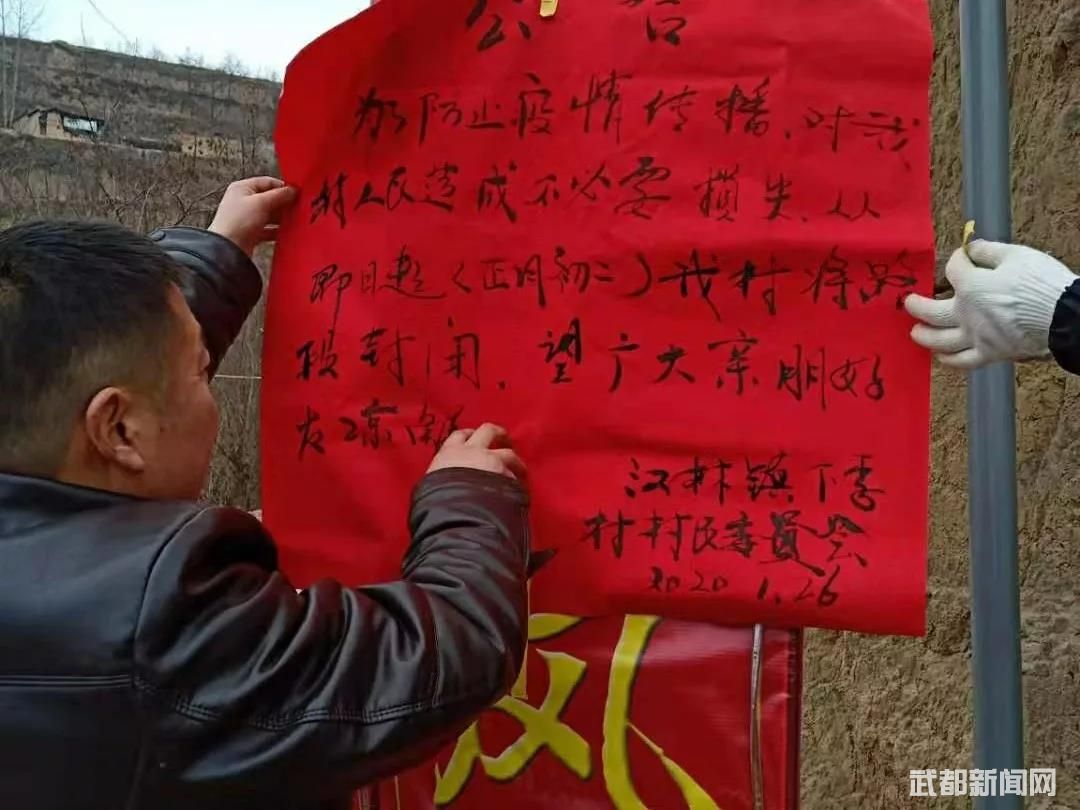 公告
为防止疫情传播、对我
村人民造成不必要损失、从
即日起（正月初二）我村将路
段封闭、望广大亲朋好
友谅解
汉林镇下李
村村民委员会
2020.1.26
武都新闻网